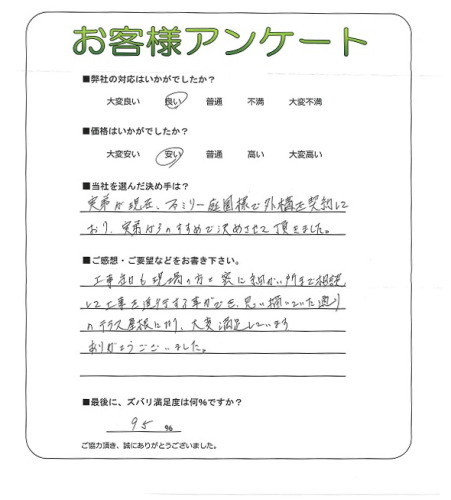 お客様アンケート
■弊社の対応はいかがでしたか?
大変良い 良い 普通 不満 大変不満
■価格はいかがでしたか?
大変安い 安い 普通 高い 大変高い
■当社を選んだ決め手は?
実弟が現在、ファミリー庭園様で外構を契約して
おり、実弟からのすすめで決めさせて頂きました。
■ご感想・ご要望などをお書き下さい。
工事担も現場の方と密に細かい所まで相談
して工事を進行する事ができ、思い描いていた通り
のテラス屋根になり、大変満足しています
ありがとうございました。
■最後に、ズバリ満足度は何%ですか?
95 %
ご協力頂き、誠にありがとうございました。